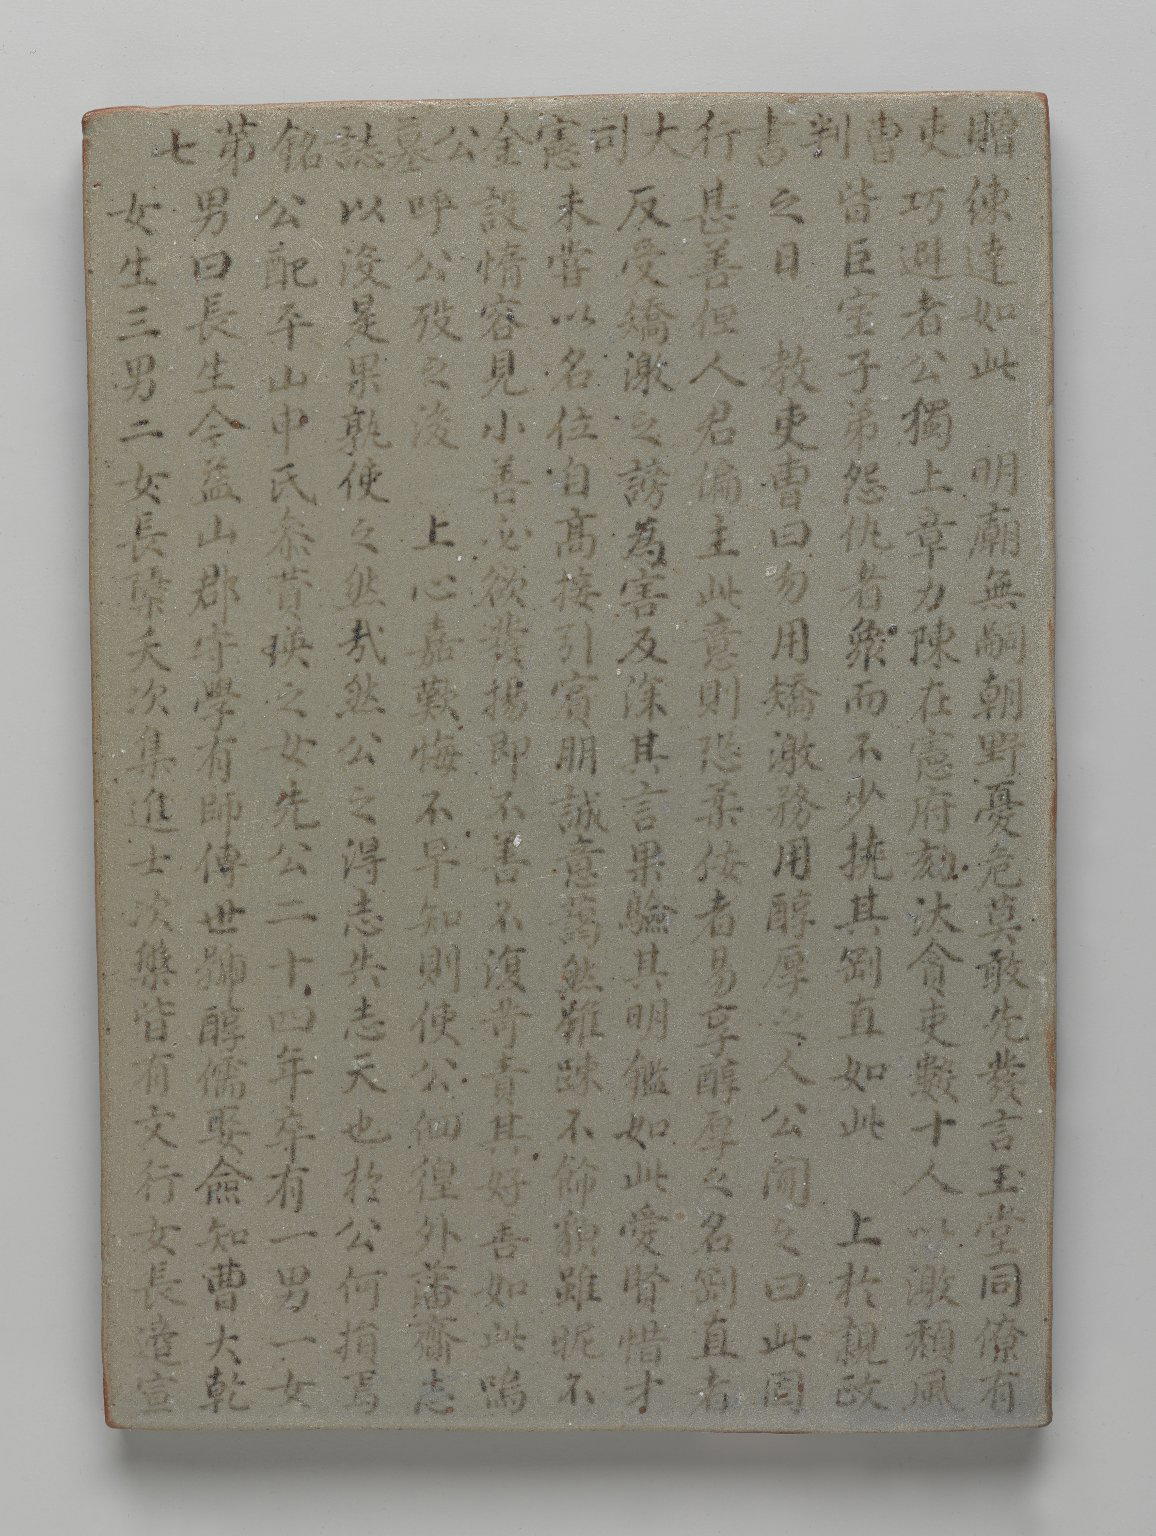 贈吏曹判書行大司憲金公墓誌銘 第七
練達如此 明廟無嗣朝野憂危莫敢先發言玉堂同僚有
巧避者公獨上章力陳在憲府劾汰貪吏數十人以激頹風
皆巨室子弟怨仇者衆而不少撓其剛直如此 上於親政
之日 教吏曹曰勿用矯激務用醇厚之人公聞之曰此固
甚善但人君偏主此意則恐柔侫者易享醇厚之名剛直者
反受矯激之謗為害反深其言果驗其明鑑如此愛賢惜才
未嘗以名位自高接引賓朋誠意藹然雖踈不餙貌雖昵不
設惰容見小善必欲發揚即不善不復苛責其好善如此嗚
呼公歿之後 上心嘉歎悔不早知則使公佪徨外藩齎志
以沒是果孰使之然哉然公之得志失志天也於公何損焉
公配平山申氏叅 瑛之女先公二十四年卒有一男一女
男曰長生今益山郡守學有師傅世號醇儒娶僉知曹大乾
女生三男二女長 夭次集進士次槃皆有文行女長適宣